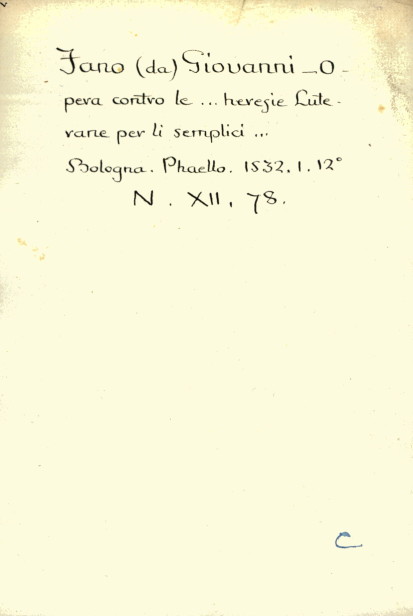 Fano (da) Giovanni - O -
pera contro le ... heresie Lute -
rane per li semplici ...
Bologna. Phaello. 1532. 1. 12°
N. XII, 78.
C